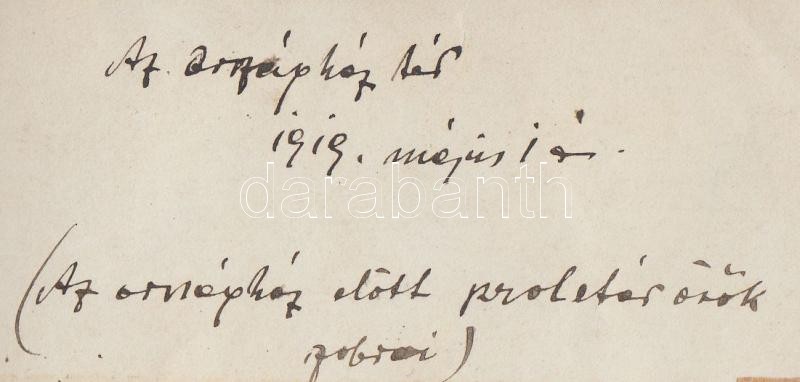 Az országház tér
1919. május 1 én.
darabanth
(Az országház előtt proletár őrök
szobrai)